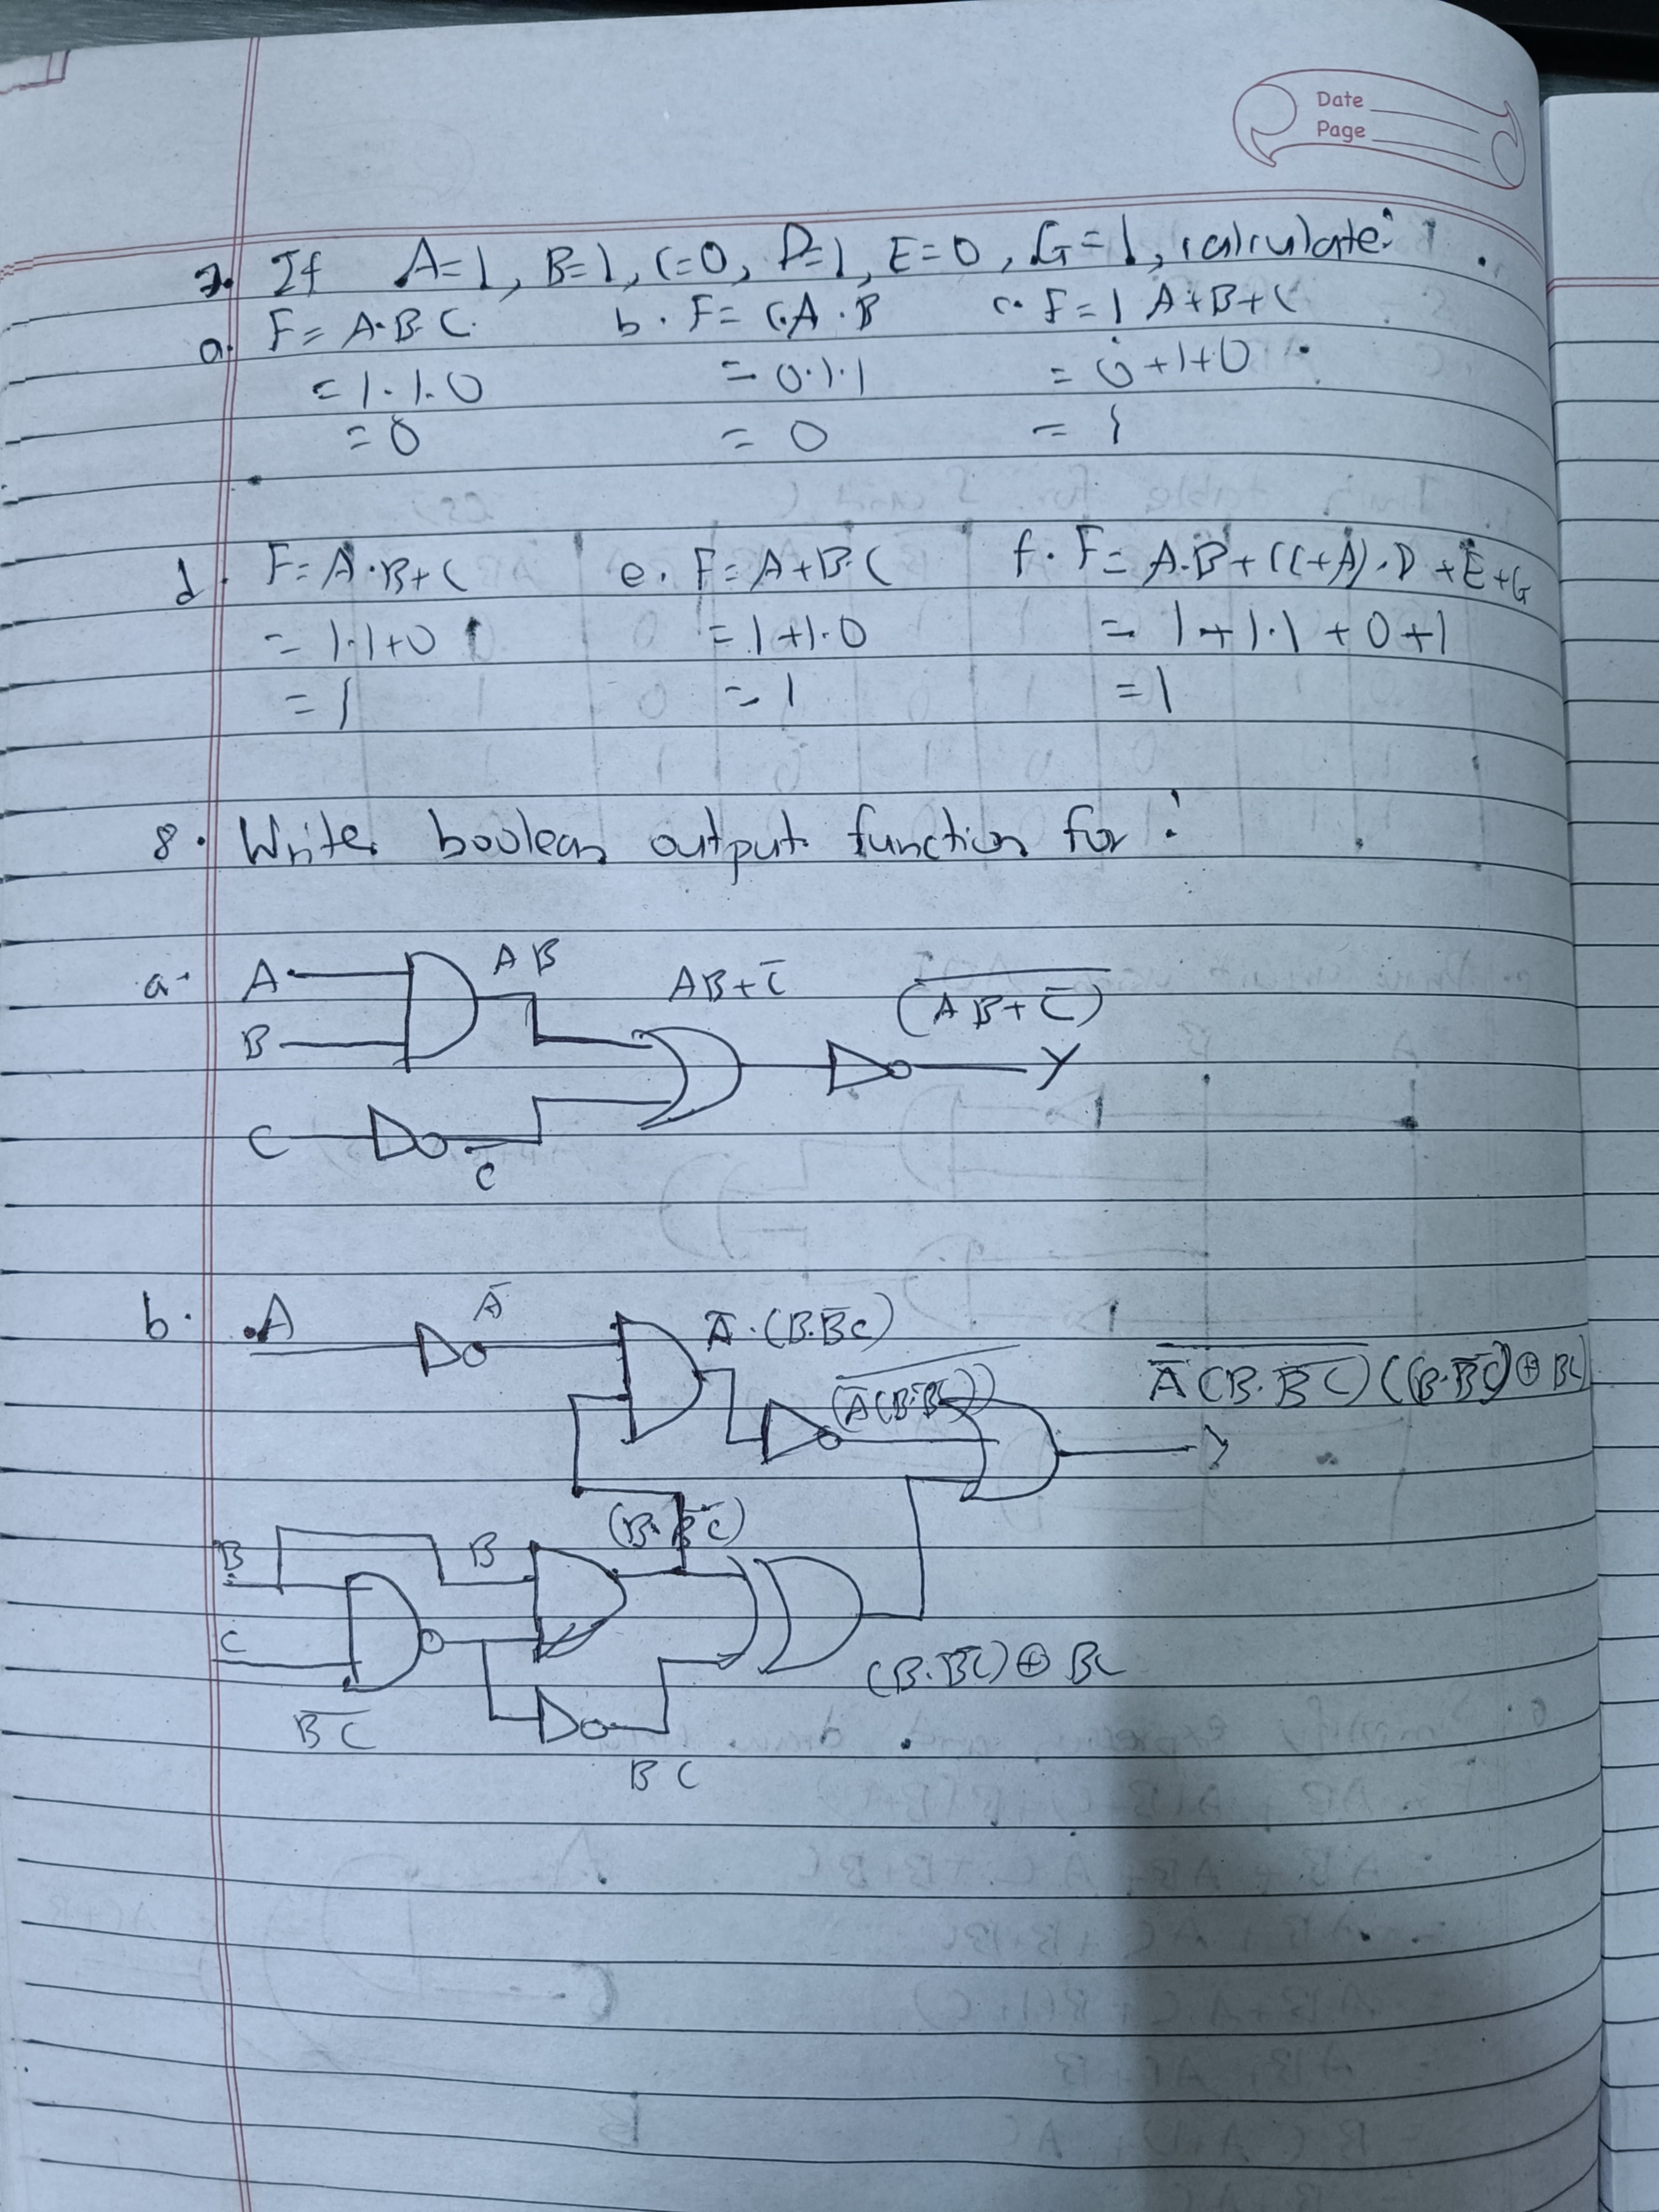 Date
Page
7. If A=1, B=1, C=0, D=1, E=0, G=1, calculate:
a. F= A·B·C. b. F= C·A·B c. F=1 A+B+C
=1·1·0 = 0·1·1 = 0+1+0
=0 = 0 = 1
d. F=A·B+C e. F=A+B·C f. F=A·B+(C+A)·D+E+G
= 1·1+0 =1+1·0 = 1+1·1+0+1
= 1 = 1 =1
8. Write boolean output function for:
a. A B AB AB+C̅ (AB+C̅)̅ Y
C C̅
b. A A̅ A̅·(B·B̅C̅) (A̅(B·B̅C̅))̅ A̅(B·B̅C̅)̅((B·B̅C̅)⊕BC) Y
B B (B·B̅C̅)
C (B·B̅C̅)⊕BC
B̅C̅
BC